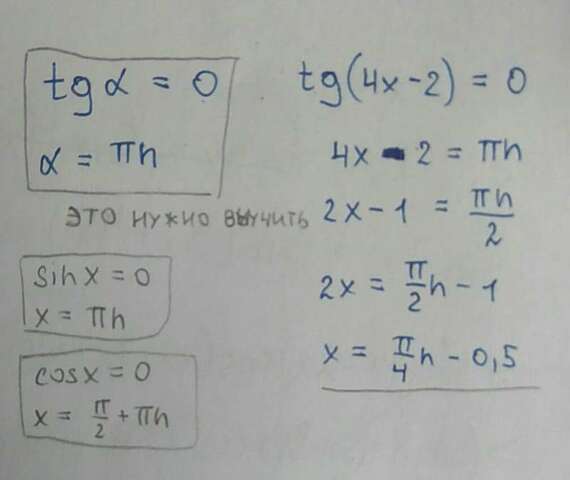 tg α = 0
α = πn
ЭТО НУЖНО ВЫУЧИТЬ
sin x = 0
x = πn
cos x = 0
x = π/2 + πn
tg(4x-2) = 0
4x - 2 = πn
2x - 1 = πn/2
2x = π/2 n - 1
x = π/4 n - 0,5